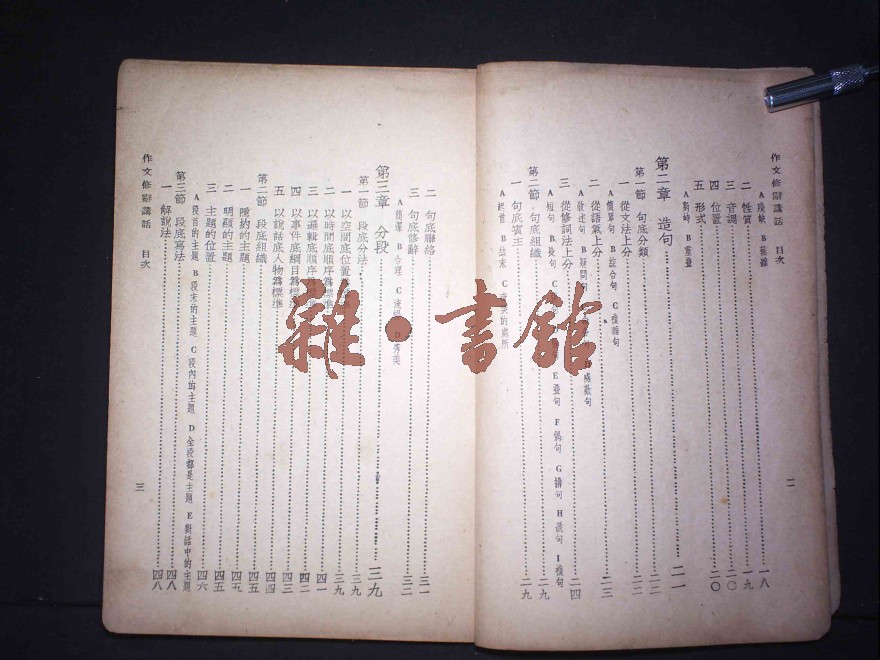 作文修辭講話 目次
二
A殘缺 B蕪雜
二 性質 一八
三 音調 一九
四 位置 二〇
五 形式 二〇
第二章 造句 二一
第一節 句底分類 二二
一 從文法上分 二二
A簡單句 B 句 C複雜句
二 從語氣上分 二三
A敘述句 B疑問句 感歎句
三 從修詞法上分 二四
A短句 B長句 E疊句 F偶句 G排句 I複句
第二節 句底組織 二九
一 句底賓主 二九
二 句底聯絡 三一
三 句底修辭 三二
A簡潔 B合理 D秀美
第三章 分段 三九
第一節 段底分法 三九
一 以空間底位置 三九
二 以時間底順序爲標準 四一
三 以邏輯底順序爲 四二
四 以事件底綱目爲標準 四三
五 以說話底人物爲標準 四四
第二節 段底組織 四五
一 隱約的主題 四五
二 明顯的主題 四五
三 主題的位置 四六
A段首的主題 B段末的主題 C段內的主題 D全段都是主題 E對話中的主題
第三節 段底寫法 四八
一 解說法 四八
作文修辭講話 目次
三
雜·書館